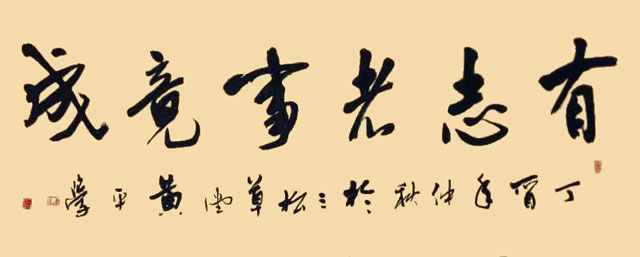 有志者事竟成
丁酉年仲秋於三松草堂黄平學